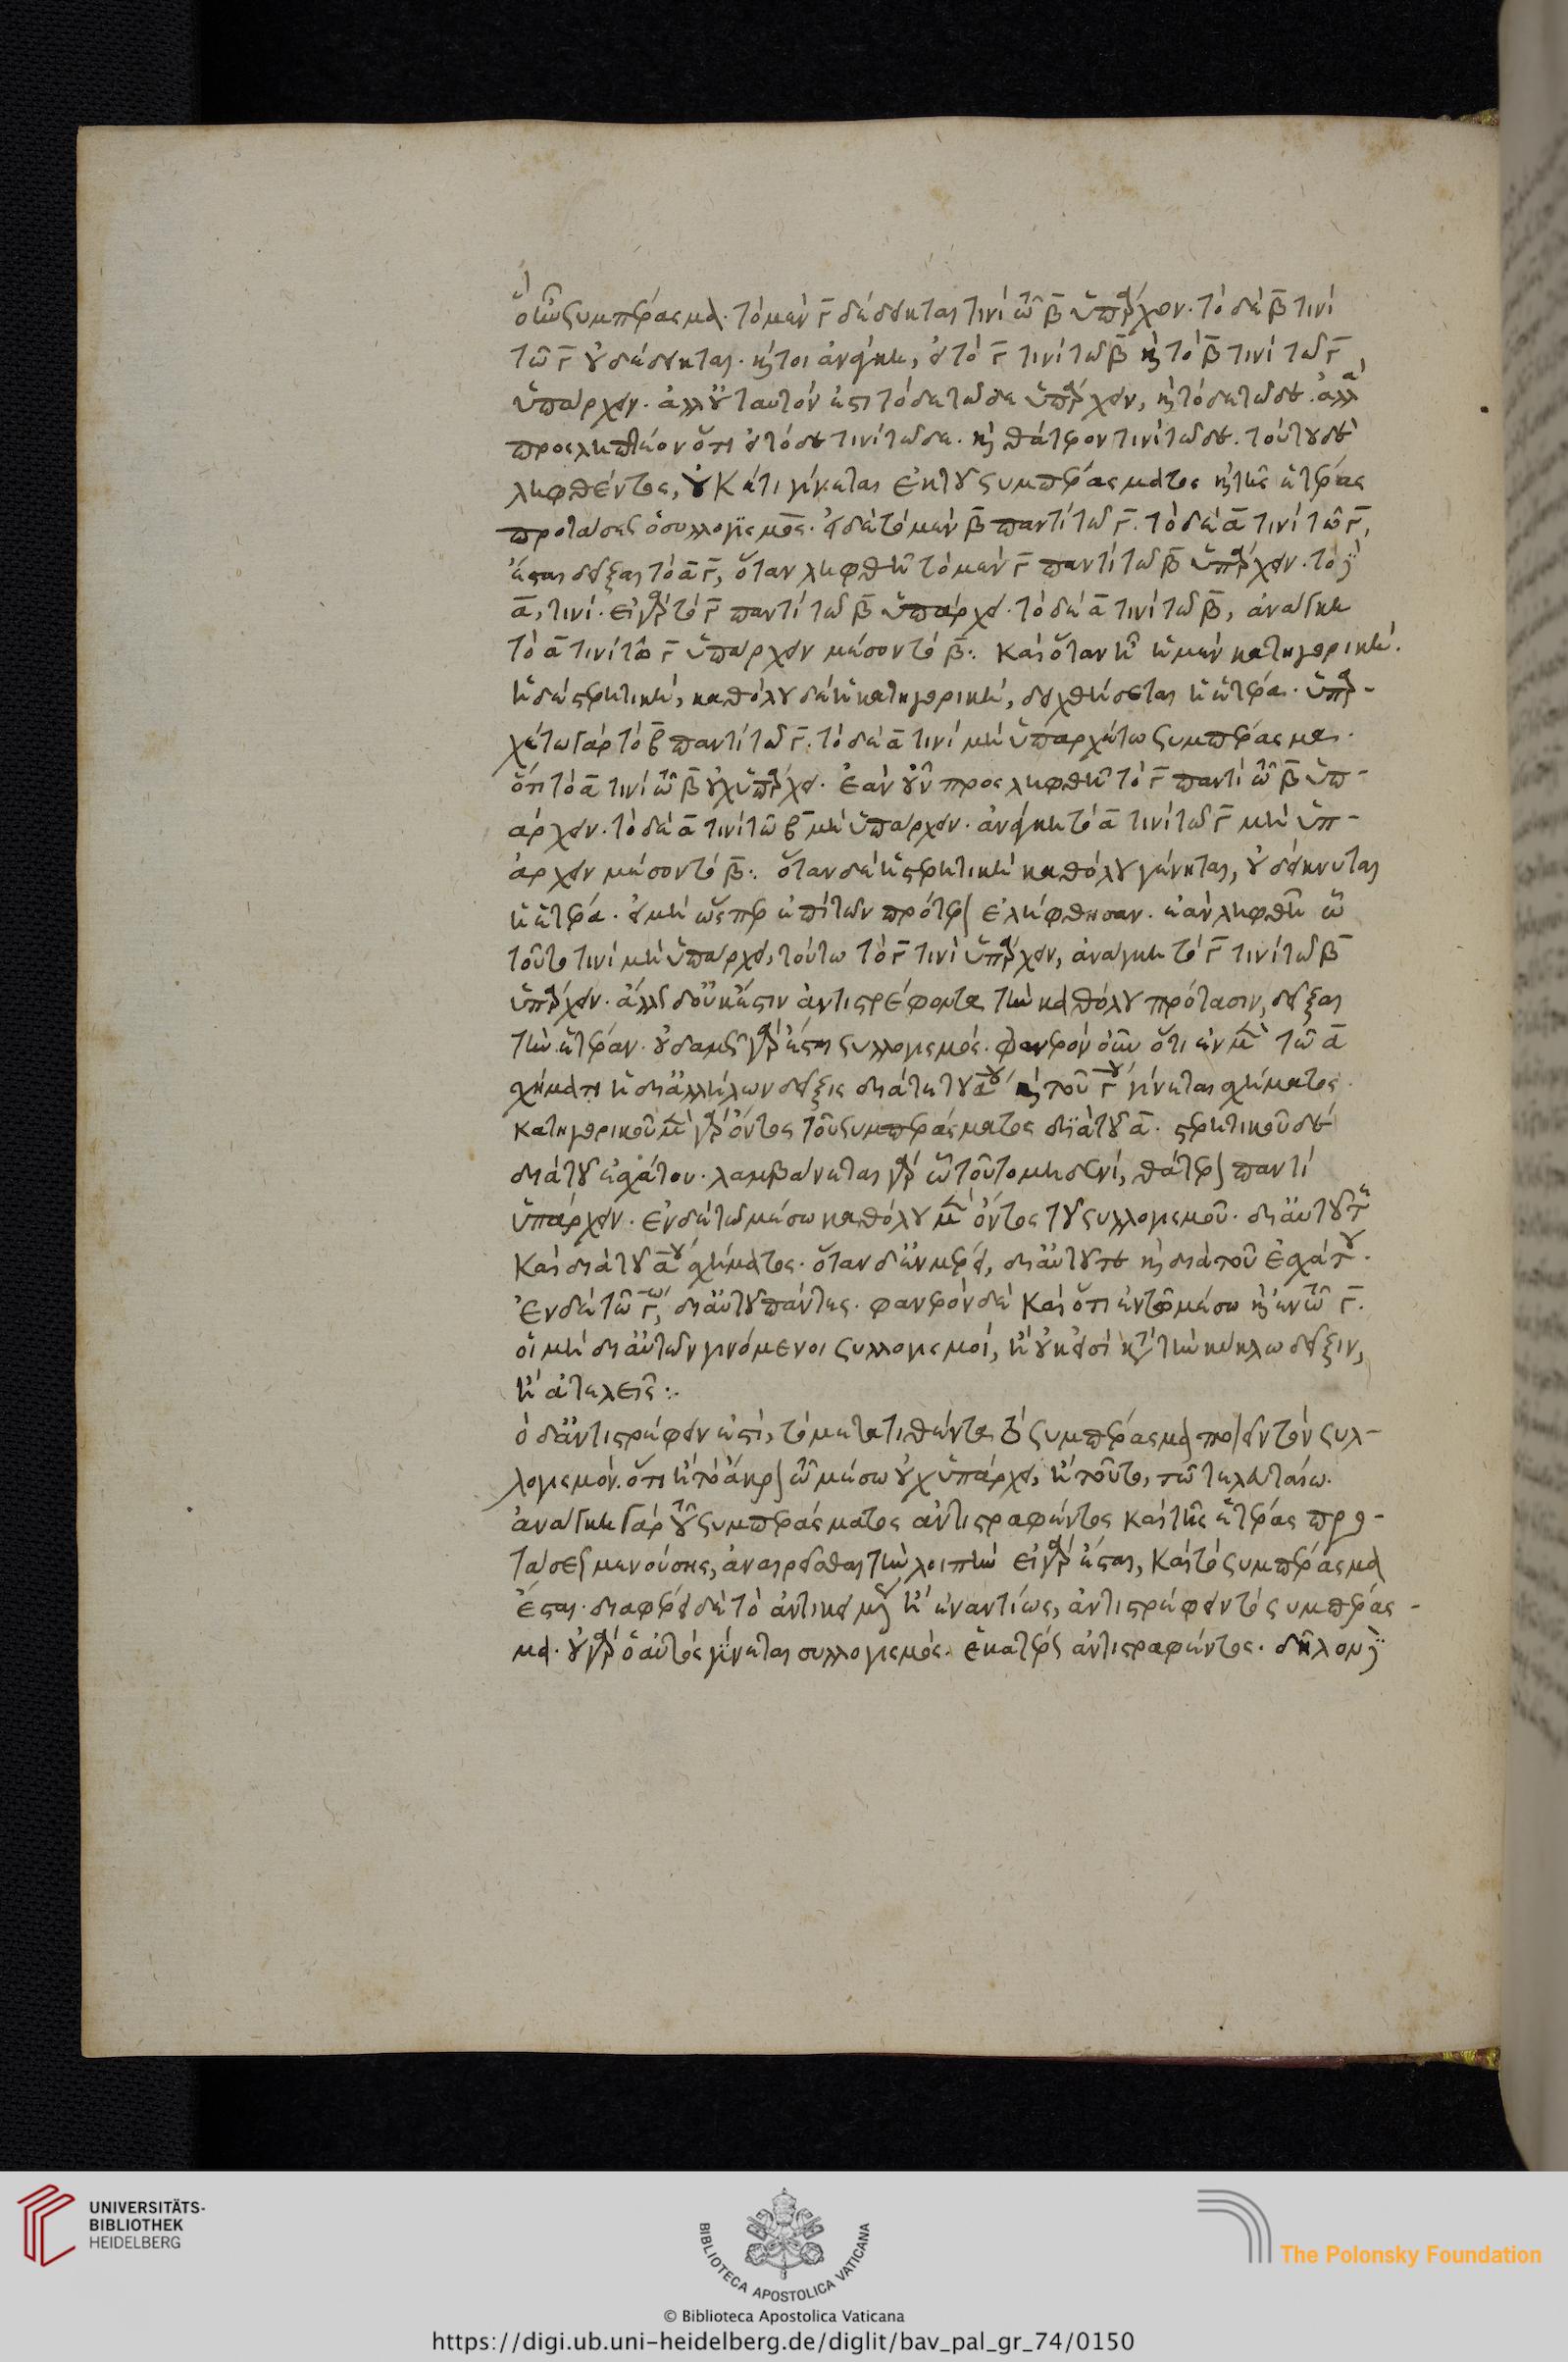 ὅ ἦν συμπέρασμα· τὸ μὲν γ̄ δέδεικται τινὶ τῶ β̄ ὑπάρχον· τὸ δὲ β̄ τινὶ
τῶ γ̄ οὐ δέδεικται· καίτοι ἀνάγκη, εἰ τὸ γ̄ τινὶ τῶ β̄ καὶ τὸ β̄ τινὶ τῶ γ̄,
ὑπάρχειν· ἀλλ' οὐ ταυτόν ἐστι τόδε τῶδε ὑπάρχειν, καὶ τόδε τῶδε· ἀλλὰ
προσληπτέον ὅτι εἰ τόδε τινὶ τῶδε· καὶ θάτερον τινὶ τῶδε· τούτου δὲ
ληφθέντος, οὐκέτι γίνεται ἐκ τοῦ συμπεράσματος καὶ τῆς ἑτέρας
προτάσεως ὁ συλλογισμός· εἰ δὲ τὸ μὲν β̄ παντὶ τῶ γ̄· τὸ δὲ ᾱ τινὶ τῶ γ̄,
ἔσται δεῖξαι τὸ ᾱ γ̄, ὅταν ληφθῆ τὸ μὲν γ̄ παντὶ τῶ β̄ ὑπάρχειν· τὸ δὲ
ᾱ, τινί· εἰ γὰρ τὸ γ̄ παντὶ τῶ β̄ ὑπάρχει· τὸ δὲ ᾱ τινὶ τῶ β̄, ἀνάγκη
τὸ ᾱ τινὶ τῶ γ̄ ὑπάρχειν μέσον τὸ β̄:· καὶ ὅταν ἦ ἡ μὲν κατηγορική·
ἡ δὲ στερητική, καθόλου δὲ ἡ κατηγορική, δειχθήσεται ἡ ἑτέρα· ὑπαρ-
χέτω γὰρ τὸ β παντὶ τῶ γ̄· τὸ δὲ ᾱ τινὶ μὴ ὑπαρχέτω συμπέρασμα·
ὅτι τὸ ᾱ τινὶ τῶ β̄ οὐχ ὑπάρχει· ἐὰν οὖν προσληφθῆ τὸ γ̄ παντὶ τῶ β̄ ὑπ-
άρχειν· τὸ δὲ ᾱ τινὶ τῶ β̄ μὴ ὑπάρχειν· ἀνάγκη τὸ ᾱ τινὶ τῶ γ̄ μὴ ὑπ-
άρχειν μέσον τὸ β̄:· ὅταν δὲ ἡ στερητικὴ καθόλου γένηται, οὐ δείκνυται
ἡ ἑτέρα· εἰ μὴ ὥσπερ ἐπὶ τῶν πρότερον ἐλήφθησαν· ἐὰν ληφθῆ ὧ
τοῦτο τινὶ μὴ ὑπάρχει, τούτω τὸ γ̄ τινὶ ὑπάρχειν, ἀνάγκη τὸ γ̄ τινὶ τῶ β̄
ὑπάρχειν· ἄλλως δ' οὐκ ἔστιν ἀντιστρέφοντα τὴν καθόλου πρότασιν, δεῖξαι
τὴν ἑτέραν· οὐδαμῶς γὰρ ἔσται συλλογισμός· φανερὸν οὖν ὅτι ἐν μὲν τῶ ᾱ
σχήματι ἡ δι' ἀλλήλων δεῖξις διά τε τοῦ ᾱου καὶ τοῦ γ̄ου γίνεται σχήματος·
κατηγορικοῦ μὲν γὰρ ὄντος τοῦ συμπεράσματος διὰ τοῦ ᾱ· στερητικοῦ δὲ
διὰ τοῦ ἐσχάτου· λαμβάνεται γὰρ ὧ τοῦτο μηδενί, θάτερον παντὶ
ὑπάρχειν· ἐν δὲ τῶ μέσω καθόλου μὲν ὄντος τοῦ συλλογισμοῦ· δι' αὐτοῦ τε
καὶ διὰ τοῦ ᾱου σχήματος· ὅταν δ' ἐν μέρει, δι' αὐτοῦ τε καὶ διὰ τοῦ ἐσχάτου·
ἐν δὲ τῶ γ̄ω, δι' αὐτοῦ πάντες· φανερὸν δὲ καὶ ὅτι ἐν τῶ μέσω καὶ ἐν τῶ γ̄·
οἱ μὴ δι' αὐτῶν γινόμενοι συλλογισμοί, ἢ οὐκ εἰσὶ κατὰ τὴν κύκλω δεῖξιν,
ἢ ἀτελεῖς:·
ὁ δ' ἀντιστρέφειν ἐστί, τὸ μετατιθέντα τὸ συμπέρασμα ποιεῖν τὸν συλ-
λογισμόν· ὅτι ἢ τὸ ἄκρον τῶ μέσω οὐχ ὑπάρχει, ἢ τοῦτο, τῶ τελευταίω·
ἀνάγκη γὰρ τοῦ συμπεράσματος ἀντιστραφέντος καὶ τῆς ἑτέρας προ-
τάσεως μενούσης, ἀναιρεῖσθαι τὴν λοιπήν εἰ γὰρ ἔσται, καὶ τὸ συμπέρασμα
ἔσται· διαφέρει δὲ τὸ ἀντικειμένως ἢ ἐναντίως, ἀντιστρέφειν τὸ συμπέρασ-
μα· οὐ γὰρ ὁ αὐτὸς γίνεται συλλογισμός· ἑκατέρως ἀντιστραφέντος· δῆλον δὲ
UNIVERSITÄTS-
BIBLIOTHEK
HEIDELBERG
BIBLIOTECA APOSTOLICA VATICANA
The Polonsky Foundation
© Biblioteca Apostolica Vaticana
https://digi.ub.uni-heidelberg.de/diglit/bav_pal_gr_74/0150